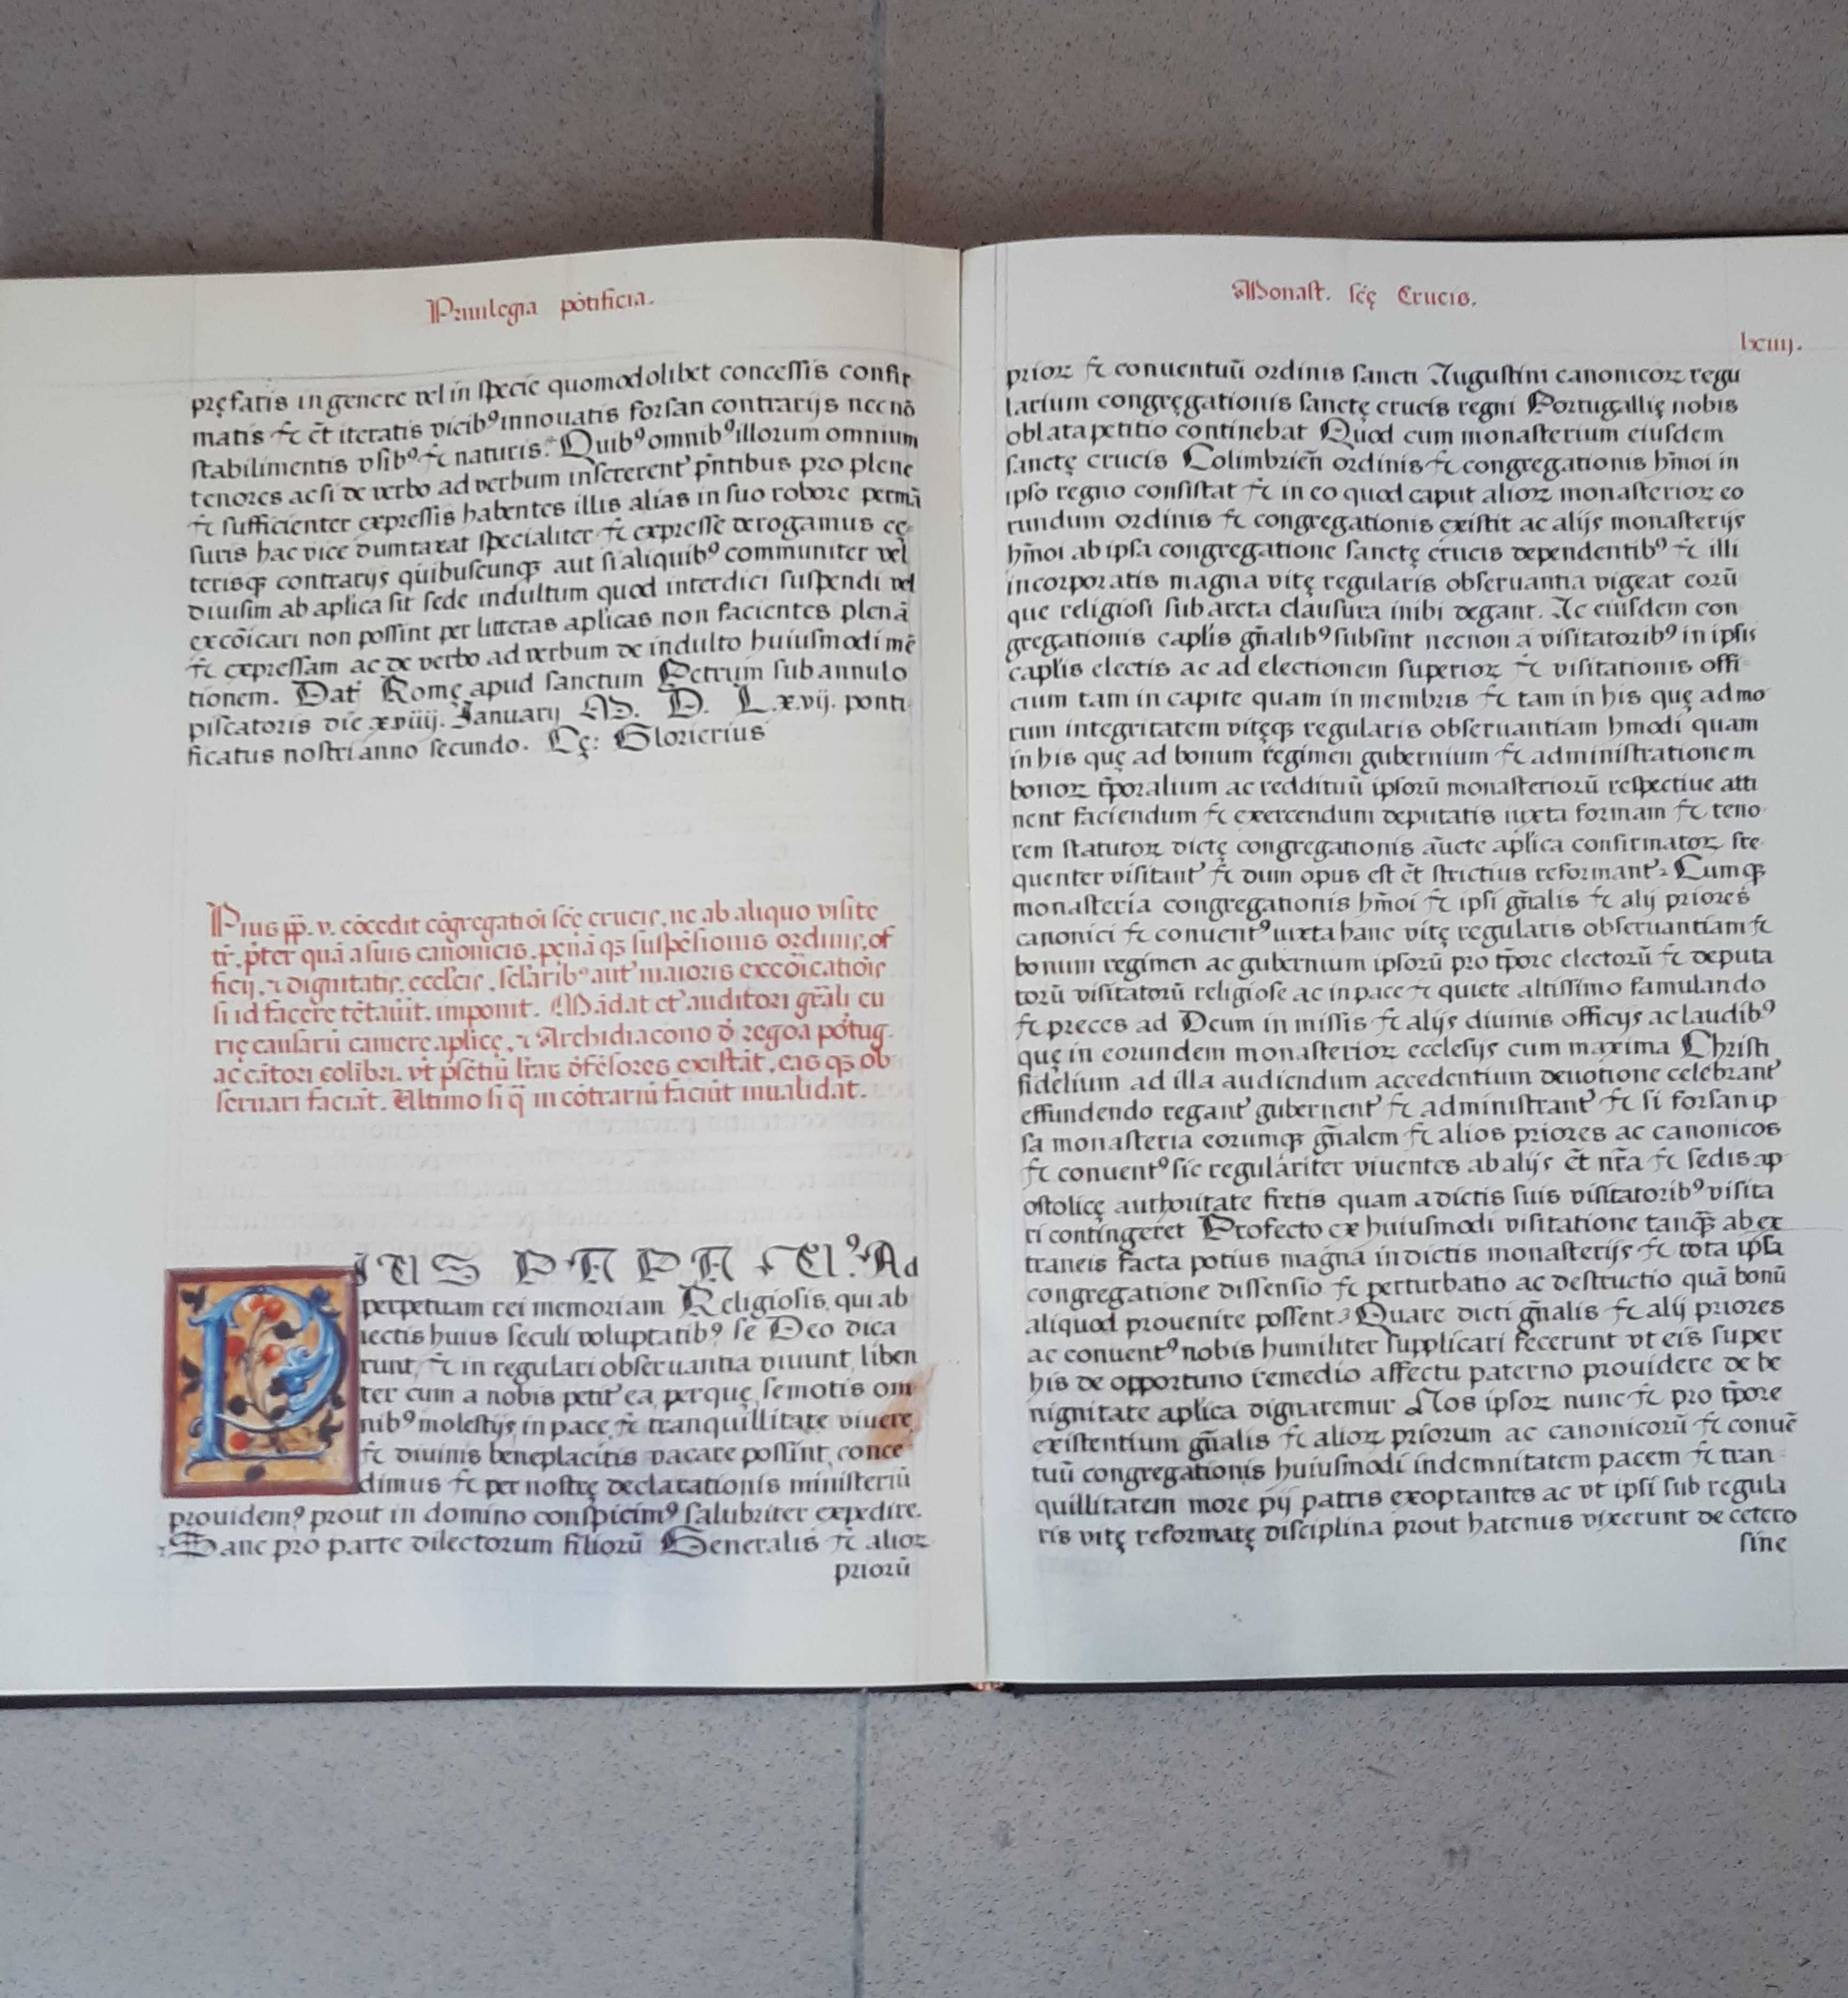 Priuilegia pōtificia.
pręfatis in genere vel in specie quomodolibet concessis confir
matis et ēt iteratis vicibꝰ innouatis forsan contrarijs necnō
stabilimentis vsibꝰ et naturis. Quibꝰ omnibꝰ illorum omnium
tenores ac si de verbo ad verbum insererent' p̄ntibus pro plene
et sufficienter expressis habentes illis alias in suo robore permā
suris hac vice dumtaxat specialiter et expresse derogamus cę-
terisqꝫ contrarijs quibuscunqꝫ aut si aliquibꝰ communiter vel
diuisim ab aplica sit sede indultum quod interdici suspendi vel
excōicari non possint per litteras aplicas non facientes plenā
et expressam ac de verbo ad verbum de indulto huiusmodi mē
tionem. Dat' Romę apud sanctum Petrum sub annulo
piscatoris die xviiij. January M. D. L.x.vij. ponti
ficatus nostri anno secundo. Cę: Glorierius
Pius pp̄. v. cōcedit cōgregatiōi scę̄ crucis, ne ab aliquo visite
tr̄, p̄ter quā a suis canōnicis, pęnā qꝫ suspēsionis ordinis, of
ficij, ⁊ dignitatis, ecclesi͡c, sclāribꝰ aut' maioris excōicatiōis
si id facere tētauīt. imponit. Mādat et' auditori gr̄ali cu
rię causarū camerę aplicę, ⁊ Archidiacono d̄ regoa pōtug.
ac cātori colibri. vt p̄sētiū lrār dēfēsores existāt, eas qꝫ ob
seruari faciāt. Ultimo si q̄ in cōtrariū faciūt inualidat.
PIUS PAPA V.ꝰ Ad
perpetuam rei memoriam Religiosis, qui ab
iectis huius seculi voluptatibꝰ se Deo dica
runt, et in regulari obseruantia viuunt, liben
ter cum a nobis petit' ea, per quę, semotis om
nibꝰ molestijs, in pace, et tranquillitate viuere,
et diuinis beneplacitis vacare possint, conce
dimus et per nostrę declarationis ministeriū
prouidemꝰ prout in domino conspicimꝰ salubriter expedire.
Sane pro parte dilectorum filiorū Generalis et alioꝝ
priorū
Monast. scę̄ Crucis.
lxiiij.
prioꝝ et conuentuū ordinis sancti Augustini canonicoꝝ regu
larium congręgationis sanctę crucis regni Portugallię nobis
oblata petitio continebat Quod cum monasterium eiusdem
sanctę crucis Colimbrien̄ ordinis et congregationis hm̄oi in
ipso regno consistat et in eo quod caput alioꝝ monasterioꝝ eo
rundum ordinis et congregationis existit ac alijs monasterijs
hm̄oi ab ipsa congregatione sanctę crucis dependentibꝰ et illi
incorporatis magna vitę regularis obseruantia vigeat eorū
que religiosi sub arcta clausura inibi degant. Ac eiusdem con
gregationis caplis gn̄alibꝰ subsint necnon a visitatoribꝰ in ipsis
caplis electis ac ad electionem superioꝝ et visitationis offi
cium tam in capite quam in membris et tam in his quę ad mo
rum integritatem vitęqꝫ regularis obseruantiam hmodi quam
in his quę ad bonum regimen gubernium et administrationem
bonoꝝ tp̄oralium ac reddituū ipsorū monasteriorū respectiue atti
nent faciendum et exercendum deputatis iuxta formam et teno
rem statutoꝝ dictę congregationis aūcte aplica confirmatoꝝ fre
quenter visitant' et dum opus est ēt strictius reformant'. Cumqꝫ
monasteria congregationis hm̄oi et ipsi gn̄alis et alij priores
canonici et conuentꝰ iuxta hanc vitę regularis obseruantiam et
bonum regimen ac gubernium ipsorū pro tp̄ore electorū et deputa
torū visitatorū religiose ac in pace et quiete altissimo famulando
et preces ad Deum in missis et alijs diuinis officijs ac laudibꝰ
quę in eorundem monasterioꝝ ecclesijs cum maxima Christi
fidelium ad illa audiendum accedentium deuotione celebrant'
effundendo regant' gubernent' et administrant' et si forsan ip
sa monasteria eorumqꝫ gn̄alem et alios priores ac canonicos
et conuentꝰ sic regulariter viuentes ab alijs ēt nr̄a et sedis ap
ostolicę authoritate fretis quam a dictis suis visitatoribꝰ visita
ri contingeret Profecto ex huiusmodi visitatione tanqꝫ ab ex
traneis facta potius magna in dictis monasterijs et tota ipsa
congregatione dissensio et perturbatio ac destructio quā bonū
aliquod prouenire possent. Quare dicti gn̄alis et alij priores
ac conuentꝰ nobis humiliter supplicari fecerunt vt eis super
his de opportuno remedio affectu paterno prouidere de be
nignitate aplica dignaremur Nos ipsoꝝ nunc et pro tp̄ore
existentium gn̄alis et alioꝝ priorum ac canonicorū et conuē
tuū congregationis huiusmodi indemnitatem pacem et tran
quillitatem more pij patris exoptantes ac vt ipsi sub regula
ris vitę reformatę disciplina prout hatenus vixerunt de cetero
sine